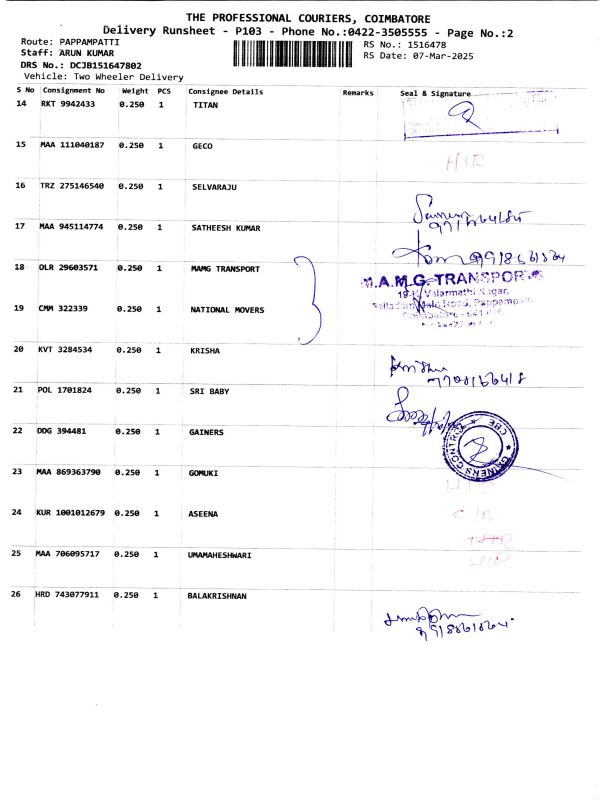 THE PROFESSIONAL COURIERS, COIMBATORE
Delivery Runsheet - P103 - Phone No.:0422-3505555 - Page No.:2
Route: PAPPAMPATTI
Staff: ARUN KUMAR
DRS No.: DCJB151647802
Vehicle: Two Wheeler Delivery
RS No.: 1516478
RS Date: 07-Mar-2025
S No Consignment No Weight PCS Consignee Details Remarks Seal & Signature
14 RKT 9942433 0.250 1 TITAN
15 MAA 111040187 0.250 1 GECO
16 TRZ 275146540 0.250 1 SELVARAJU
17 MAA 945114774 0.250 1 SATHEESH KUMAR
18 OLR 29603571 0.250 1 MAMG TRANSPORT
M.A.M.G. TRANSPORT
19 CMM 322339 0.250 1 NATIONAL MOVERS
20 KVT 3284534 0.250 1 KRISHA
21 POL 1701824 0.250 1 SRI BABY
22 DDG 394481 0.250 1 GAINERS
23 MAA 869363790 0.250 1 GOMUKI
24 KUR 1001012679 0.250 1 ASEENA
25 MAA 706095717 0.250 1 UMAMAHESHWARI
26 HRD 743077911 0.250 1 BALAKRISHNAN